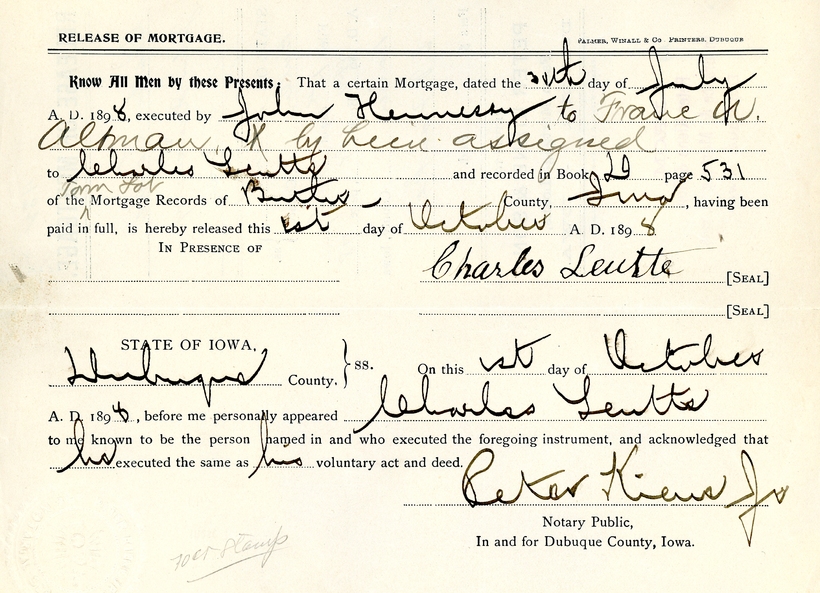 RELEASE OF MORTGAGE. PALMER, WINALL & CO. PRINTERS, DUBUQUE
Know All Men by these Presents: That a certain Mortgage, dated the day of July
A. D. 1898, executed by John Hennessy to
Altman, & by been assigned
to Charles Leutte and recorded in Book page 531
Town Lot
of the Mortgage Records of County, Iowa, having been
paid in full, is hereby released this 1st day of October A. D. 1898
IN PRESENCE OF
Charles Leutte [SEAL]
[SEAL]
STATE OF IOWA,
Dubuque County. } ss. On this 1st day of October
A. D. 1898, before me personally appeared Charles Leutte
to me known to be the person named in and who executed the foregoing instrument, and acknowledged that
he executed the same as his voluntary act and deed.
Peter Kiene Jr
Notary Public,
In and for Dubuque County, Iowa.
Stamp